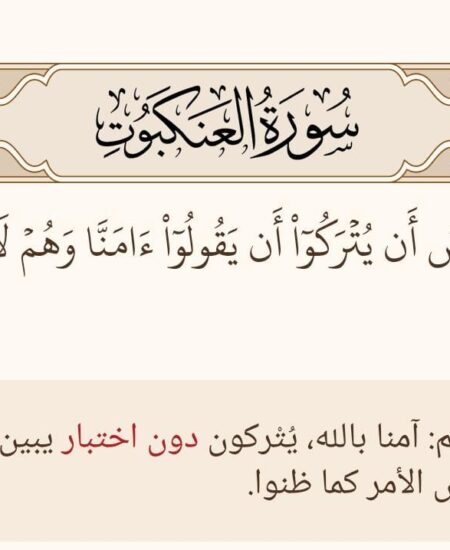 سُورَةُ العَنكَبُوتِ
أَن يُتْرَكُوٓا۟ أَن يَقُولُوٓا۟ ءَامَنَّا وَهُمْ
آمنا بالله، يُتْركون دون اختبار يبين
الأمر كما ظنوا.